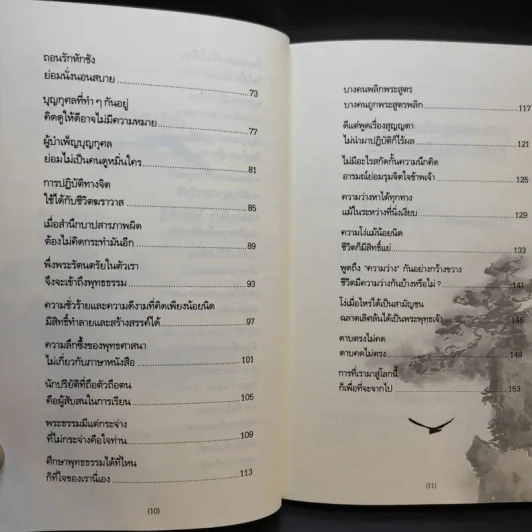 ถอนรักหักชัง
ย่อมนั่งนอนสบาย 73
บุญกุศลที่ทำ ๆ กันอยู่
คิดดูให้ดีอาจไม่มีความหมาย 77
ผู้บำเพ็ญบุญกุศล
ย่อมไม่เป็นคนดูหมิ่นใคร 81
การปฏิบัติทางจิต
ใช้ได้กับชีวิตฆราวาส 85
เมื่อสำนึกบาปสารภาพผิด
ต้องไม่คิดกระทำมันอีก 89
พึ่งพระรัตนตรัยในตัวเรา
จึงจะเข้าถึงพุทธธรรม 93
ความชั่วร้ายและความดีงามที่คิดเพียงน้อยนิด
มีสิทธิ์ทำลายและสร้างสรรค์ได้ 97
ความลึกซึ้งของพุทธศาสนา
ไม่เกี่ยวกับภาษาหนังสือ 101
นักปริยัติที่ถือตัวถือตน
คือผู้สับสนในการเรียน 105
พระธรรมมีแต่กระจ่าง
ที่ไม่กระจ่างคือใจท่าน 109
ศึกษาพุทธธรรมได้ที่ไหน
ก็ที่ใจของเรานี่เอง 113
(10)
บางคนพลิกพระสูตร
บางคนถูกพระสูตรพลิก 117
ดีแต่พูดเรื่องสุญญตา
ไม่นำมาปฏิบัติก็ไร้ผล 121
ไม่มีอะไรสกัดกั้นความนึกคิด
อารมณ์ย่อมรุมจิตใจข้าพเจ้า 125
ความว่างหาได้ทุกทาง
แม้ในระหว่างที่นั่งเงียบ 129
ความโง่แม้น้อยนิด
ชีวิตก็มีสิทธิ์แย่ 133
พูดถึง "ความว่าง" กันอย่างกว้างขวาง
ชีวิตมีความว่างกันบ้างหรือไม่ ? 141
โง่เมื่อไหร่ได้เป็นสามัญชน
ฉลาดเลิศล้นได้เป็นพระพุทธเจ้า 145
ดาบตรงไม่คด
ดาบคดไม่ตรง 149
การที่เรามาสู่โลกนี้
ก็เพื่อที่จะจากไป 153
(11)